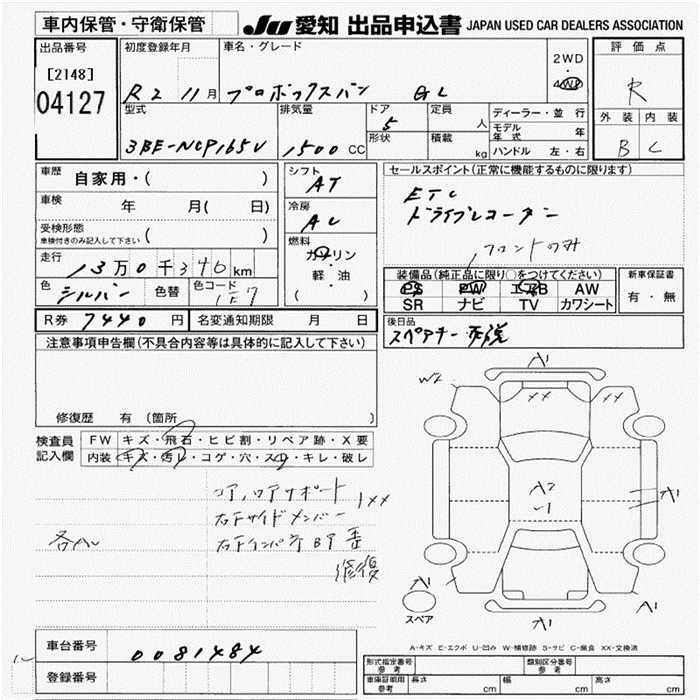 車内保管・守衛保管
JU 愛知 出品申込書 JAPAN USED CAR DEALERS ASSOCIATION
出品番号
[2148]
04127
初度登録年月
R2 11月
車名・グレード
プロボックスバン GL
2WD
・
4WD
評価点
R
外装 内装
B C
型式
3BE-NCP165V
排気量
1500 CC
ドア
5
形状
定員
人
積載
kg
ディーラー・並行
モデル年式 年
ハンドル 左・右
車歴
自家用・( )
車検
年 月( 日)
受検形態
車検付きのみ記入して下さい ( )
走行
13万0千340km
色
シルバー 色替 色コード
1E7
シフト
AT
冷房
AC
燃料
ガソリン
軽・油
( )
セールスポイント(正常に機能するものに限ります)
ETC
ドライブレコーダー
フロントのみ
装備品(純正品に限り○をつけてください)
PS PW エアB AW
SR ナビ TV カワシート
新車保証書
有・無
R券 7440円 名変通知期限 月 日
後日品
スペアキー 取説
注意事項申告欄(不具合内容等は具体的に記入して下さい)
修復歴 有(箇所 )
検査員記入欄
FW キズ・飛石・ヒビ割・リペア跡・X要
内装 キズ・汚レ・コゲ・穴・スレ・キレ・破レ
コアノロアサポート 1××
右下サイドメンバー
右下インパネBT 歪
修復
各A
W2 A1
×× ××
A2
A1
A1
A1
A1
スペア
A-キズ E-エクボ U-凹み W-補修跡 S-サビ C-腐食 XX-交換済
車台番号 0081484
登録番号
形式指定番号 参考
類別区分番号 参考
車庫証明用 参考
長さ cm 幅 cm 高さ cm